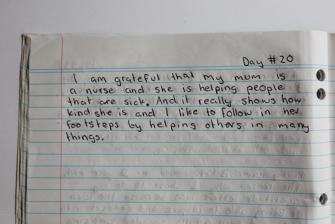 Day #20
I am grateful that my mum is
a nurse and she is helping people
that are sick. And it really shows how
kind she is and I like to follow in her
footsteps by helping others in many
things.